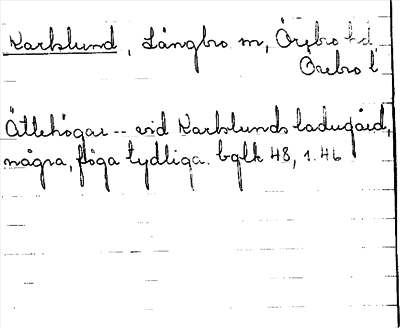 Karlslund, Längbro sn, Örebro hd
Örebro l
Ättehögar -- vid Karlslunds ladugård,
några, föga tydliga. bglk 48, 1.46